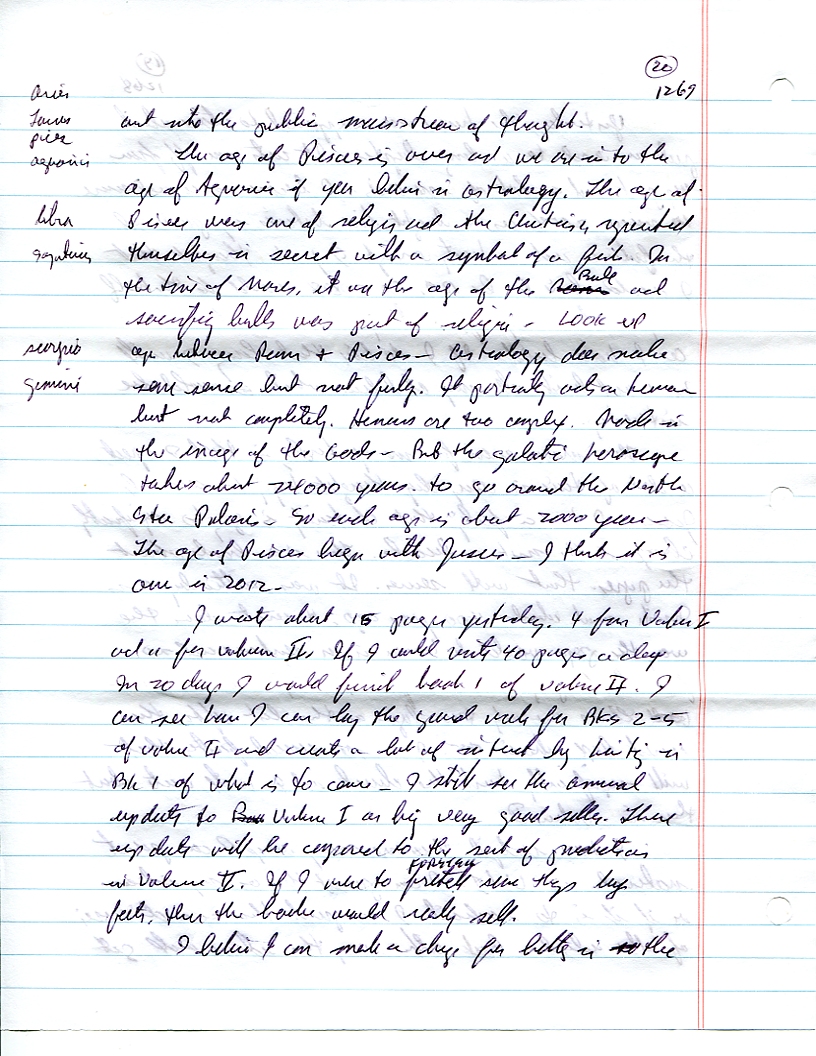 20
1269
Aries
Taurus
out into the public mainstream of thought.
The age of Pisces is over and we are into the
age of Aquarius if you believe in astrology. The age of
libra
Pisces was one of religion and the Christians
themselves in secret with a symbol of a fish. In
Bull
the time of Moses, it was the age of the and
sacrificing bulls was part of religion - LOOK UP
scorpio
age between Ram + Pisces - Astrology does make
gemini
some sense but not fully. It partially acts on humans
but not completely. Humans are too complex. Made in
the image of the Gods - But the galatic horoscope
takes about 24000 years. to go around the North
Star Polaris - So each age is about 2000 years -
The age of Pisces began with Jesus - I think it is
over in 2012 -
I wrote about 15 pages yesterday. 4 for Volume I
and 11 for volume II. If I could write 40 pages a day
In 20 days I would finish book 1 of volume II. I
can see how I can lay the ground work for BKs 2-5
of volume II and create a lot of interest by hinting in
Bk 1 of what is to come - I still see the annual
updates to Volume I as big very good sellers. These
updates will be compared to the sort of predictions
FORETELL
in Volume II. If I were to foretell some things
facts, then the books would really sell.
I believe I can make a change for better in the